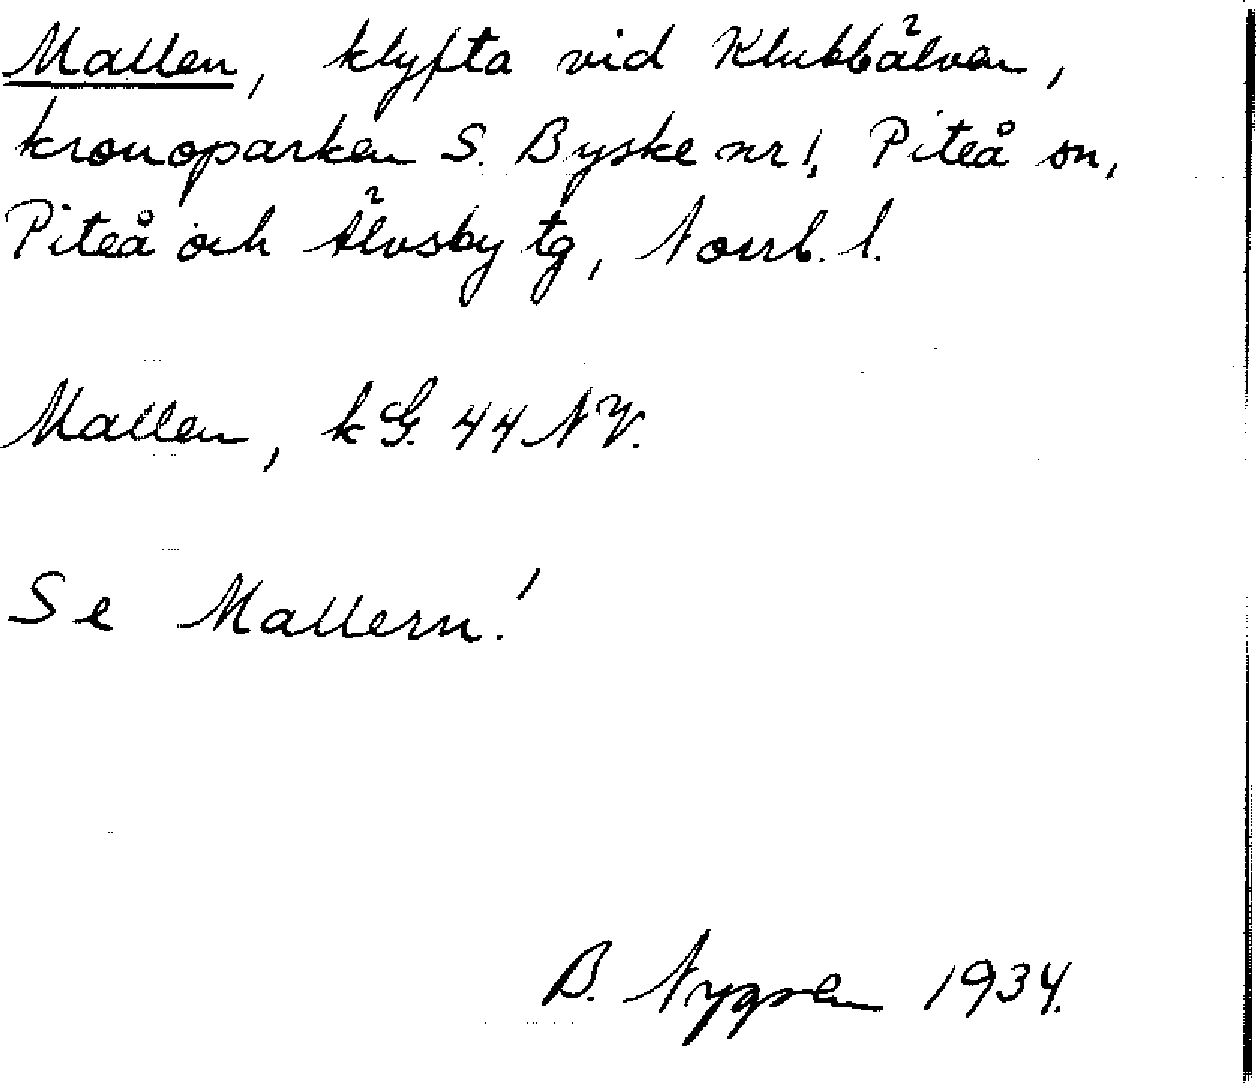 Mallen, klyfta vid Klubbälven,
kronoparken S. Byske nr 1, Piteå sn,
Piteå och Älvsby tg, Norrb. l.
Mallen, kG. 44 NV.
Se Mallern!
B. Nygren 1934.